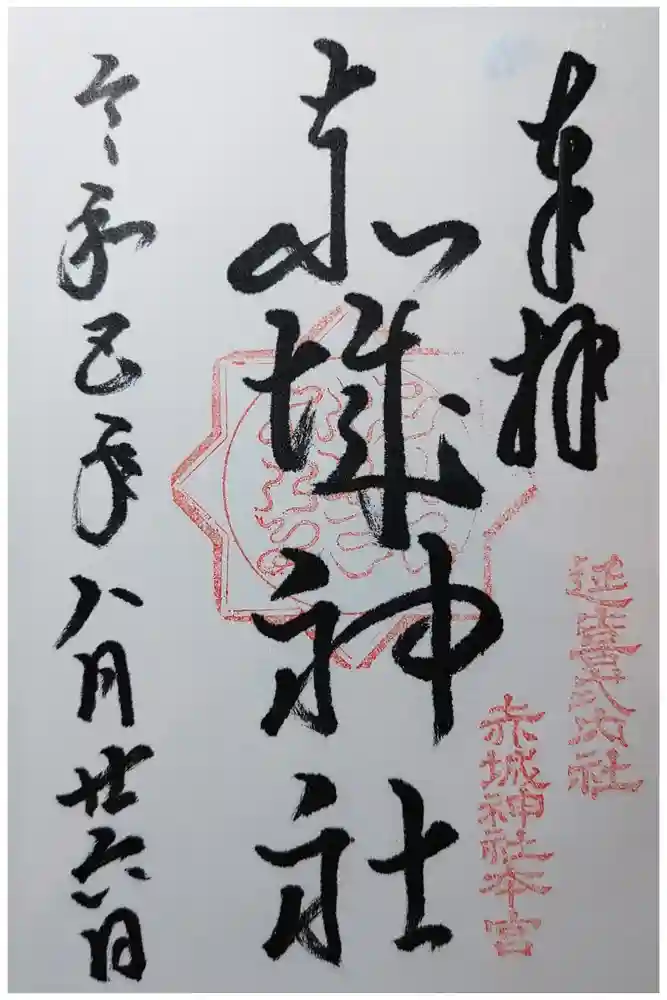 奉拝
延喜式内社
赤城神社本宮
赤城神社
令和五年八月廿六日